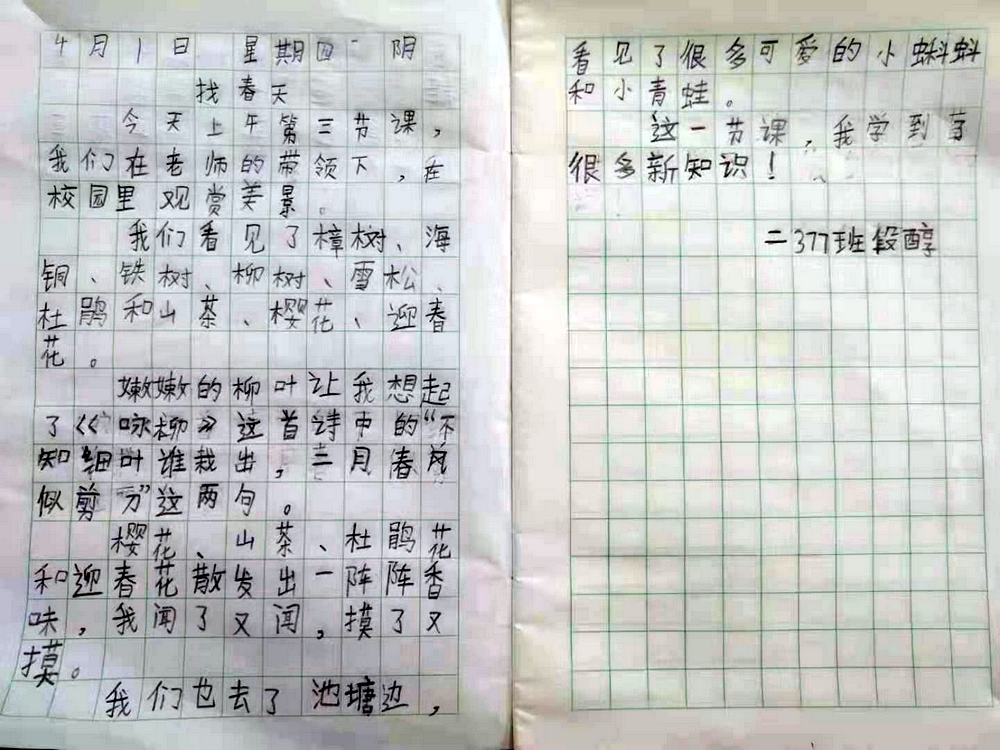 4月1日 星期四 阴
找春天
今天上午第三节课，
我们在老师的带领下，在
校园里观赏美景。
我们看见了樟树、海
铜、铁树、柳树、雪松、
杜鹃和山茶、樱花、迎春
花。
嫩嫩的柳叶让我想起
了《咏柳》这首诗中的“不
知细叶谁栽出，三月春风
似剪刀”这两句。
樱花、山茶、杜鹃花
和迎春花散发出一阵阵香
味，我闻了又闻，摸了又
摸。
我们也去了池塘边，
看见了很多可爱的小蝌蚪
和小青蛙。
这一节课，我学到了
很多新知识！
二377班段醇